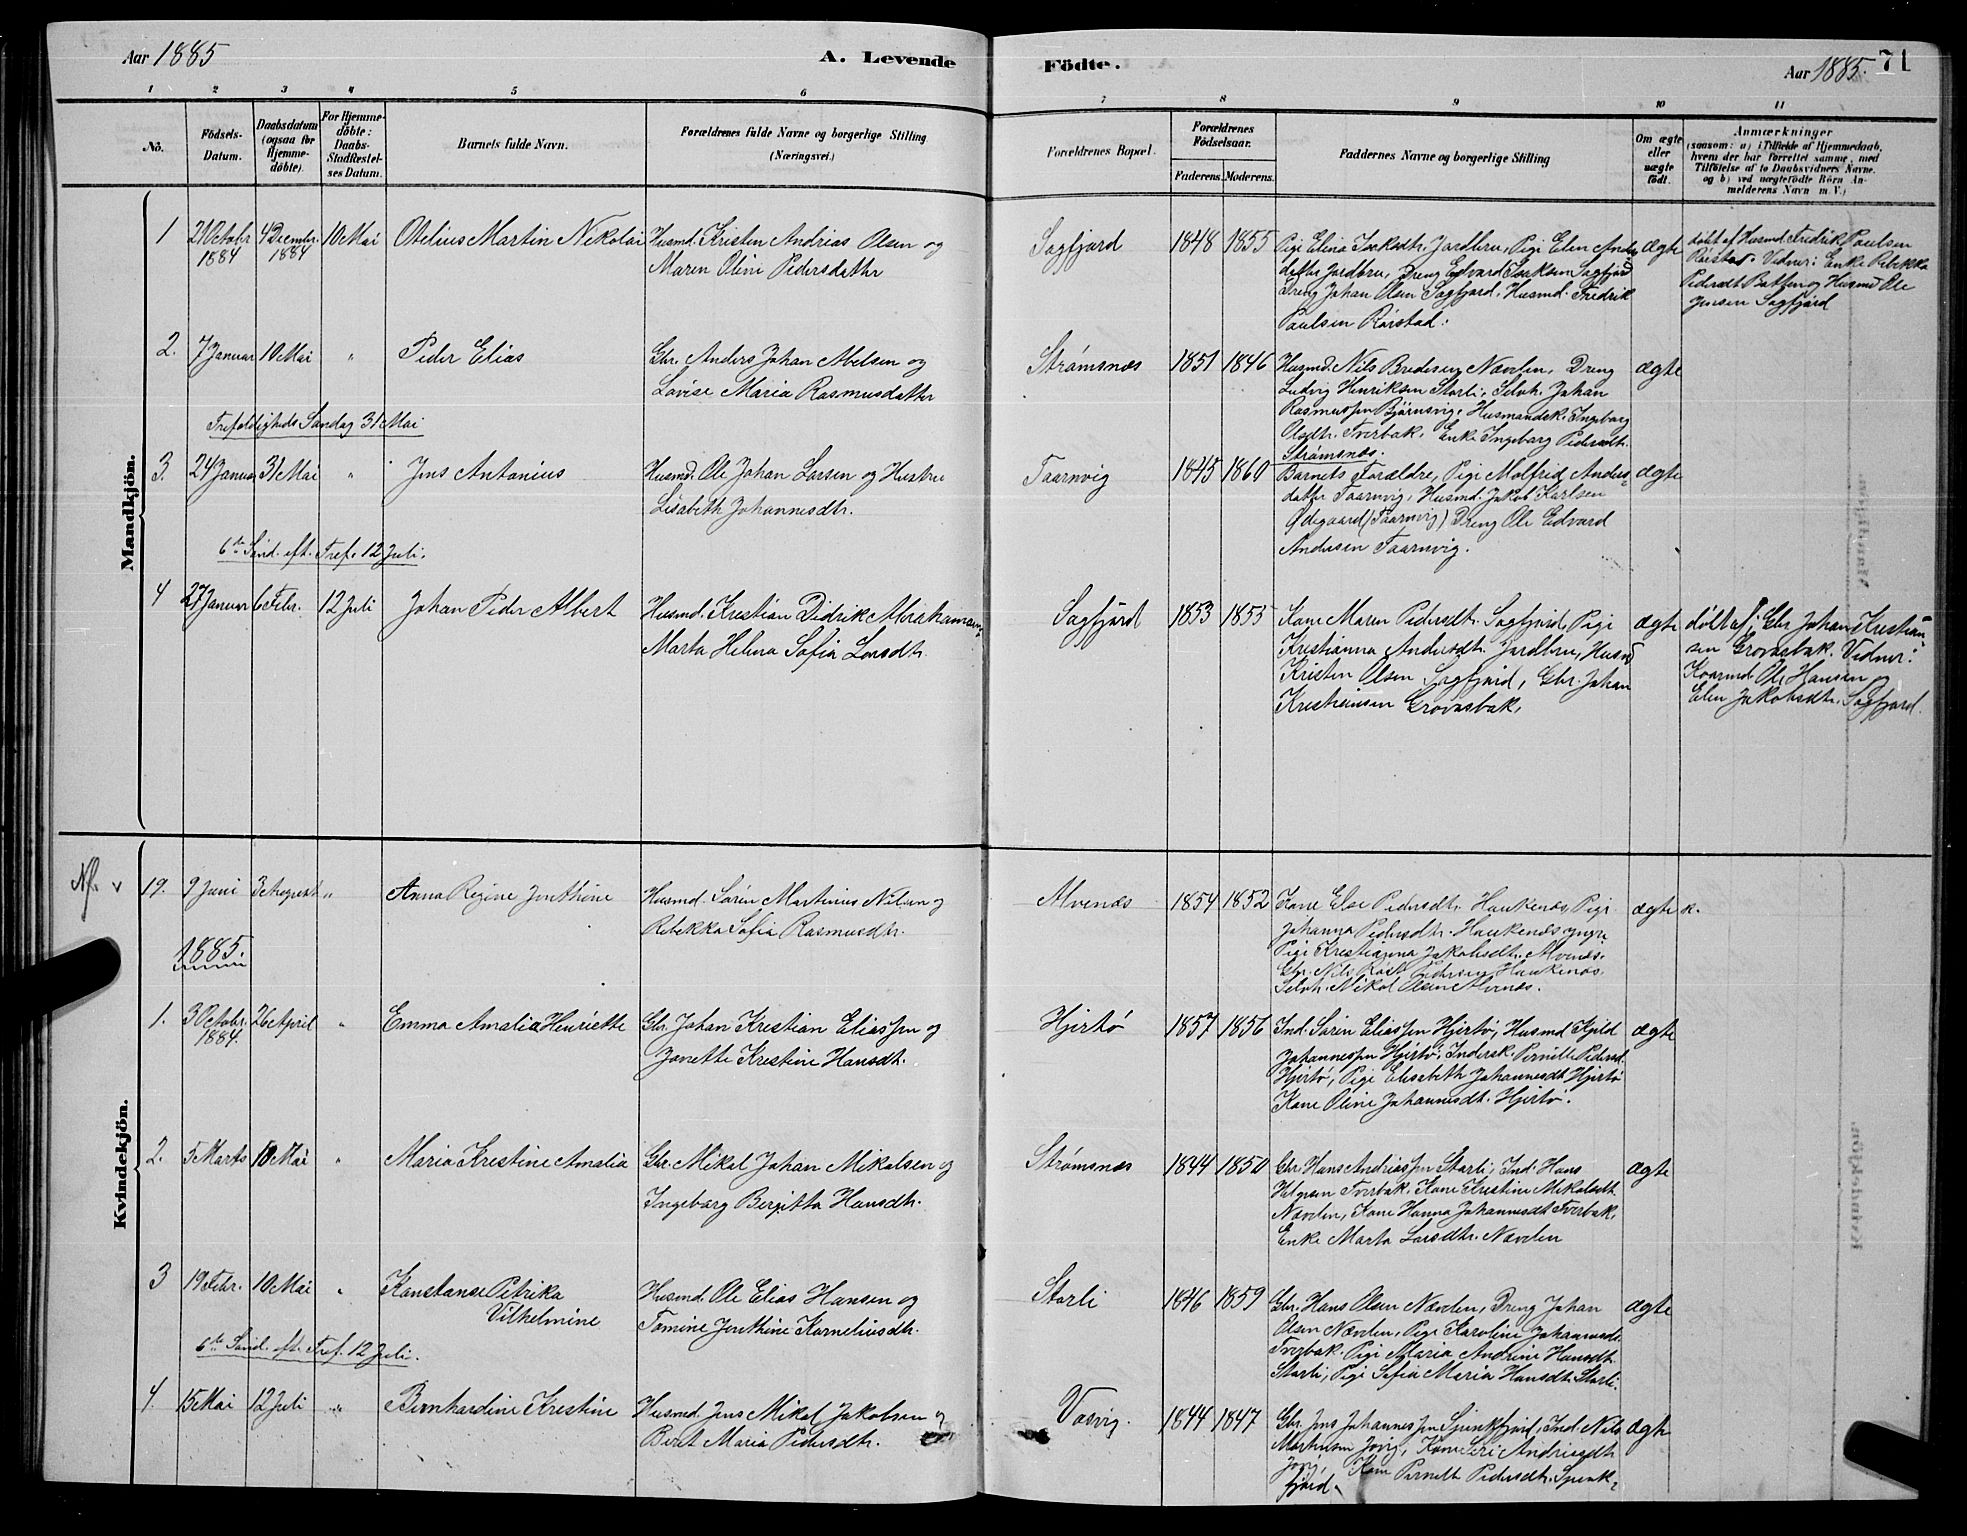 Aar 1885
A. Levende
Födte.
Aar 1885.
71
1 2 3 4 5 6 7 8 9 10 11
No.
Födsels-
Datum.
Daabsdatum
(ogsaa for
Hjemme-
döbte).
For Hjemme-
döbte:
Daabs-
Stadfæstel-
ses Datum.
Barnets fulde Navn.
Forældrenes fulde Navne og borgerlige Stilling
(Næringsvei.)
Forældrenes Bopæl.
Forældrenes
Födselsaar.
Faderens. Moderens.
Faddernes Navne og borgerlige Stilling
Om ægte
eller
uægte
født.
Anmærkninger
(saasom: a) i Tilfælde af Hjemmedaab,
hvem der har forrettet samme, med
Tilföielse af to Daabsvidners Navne.
og b) ved uægtefödte Börn An-
melderens Navn m. V.)
Mandkjön.
1 21 Octobr 1884 4 Decembr. 1884 10 Mai Otelius Martin Nikolai
Husmd. Kristen Andrias Olsen og
Maren Oline Pedersdatter
Sagfjord 1848 1855
Pige Elina Isaksdtr. Jordbru, Pige Elen Anders
datter Jordbru, Dreng Edvard Isaksen Sagfjord
Dreng Johan Olsen Sagfjord. Husmd. Fredrik
Paulsen Rørstad.
ægte
døbt af Husmd. Fredrik Paulsen
Rørstad. Vidner: Enke Rebekka
Pedersdt. Batten og Husmd Ole
Jensen Sagfjord
2. 7 Januar 10 Mai " Peder Elias
Gbr. Anders Johan Abelsen og
Lovise Maria Rasmusdatter
Strømsnæs 1851 1846
Husmd. Nils Bredesen Nævelen, Dreng
Ludvig Henriksen Storli, Selvh. Johan
Rasmussen Bjørnsvig, Husmandsk. Ingeborg
Olsdtr. Tverbak, Enke Ingeborg Pedersdtr.
Strømsnæs.
ægte
Trefoldigheds Søndag 31 Mai
3. 24 Januar 31 Mai " Jens Antonius
Husmd. Ole Johan Larsen og Hustru
Lisabeth Johannesdtr.
Taarnvig 1845 1860
Barnets Forældre, Pige Molfrid Anders-
datter Taarnvig, Husmd. Jakob Karlsen
Ødegaard (Taarnvig) Dreng Ole Edvard
Andersen Taarnvig.
ægte
6te Sønd. eft. Tref. 12 Juli.
4 27 Januar 6 Febr. 12 Juli Johan Peder Albert
Husmd. Kristian Didrik Abrahamsen og
Marta Helena Sofia Larsdtr.
Sagfjord 1853 1855
Kone Maren Pedersdt. Sagfjord, Pige
Kristianna Andersdtr. Jordbru, Husmd
Kristen Olsen Sagfjord, Gbr. Johan
Kristiansen Grovasbak.
ægte
døbt af: Gbr Johan Kristian-
sen Grovasbak. Vidner:
Kaarmd. Ole Hansen og
Elen Jakobsdtr. Sagfjord.
Kvindekjön.
Nf. v
19. 9 Juni 3 August " Anna Regine Jenthine
Husmd. Søren Martinus Nilsen og
Rebekka Sofia Rasmusdtr.
Alvenæs 1854 1852
Kone Else Pedersdt. Haukenæs, Pige
Johanna Pedersdtr. Haukenæs yngr.
Pige Kristianna Jakobsdtr. Alvenæs.
Gbr. Nils Røst Pedersen Haukenæs.
Selvh. Nikol Olsen Alvenæs.
ægte k.
1885.
1. 3 Octobr. 1884. 26 April " Emma Amalia Henriette
Gbr. Johan Kristian Eliassen og
Janette Kristine Hansdt.
Hjertø 1857 1856
Ind. Søren Eliassen Hjertø, Husmd Kjeld
Johannessen Hjertø, Indersk. Pernille Pedersd.
Hjertø, Pige Elisabeth Johannesdt Hjertø
Kone Oline Johannesdt. Hjertø.
ægte
2. 5 Marts 10 Mai " Maria Kristine Amalia
Gbr. Mikal Johan Mikalsen og
Ingeborg Birgitta Hansdtr.
Strømsnæs 1844 1850
Gbr. Hans Andriassen Storli, Ind. Hans
Helgesen Tverbak, Kone Kristine Mikalsdt.
Nævelen, Kone Hanna Johannesdt Tverbak,
Enke Marta Larsdtr. Nævelen
ægte
3 19 Febr. 10 Mai " Konstanse Petrika
Vilhelmine
Husmd. Ole Elias Hansen og
Tomine Jenthine Korneliusdtr.
Storli 1846 1859
Gbr. Hans Olsen Nævelen, Dreng Johan
Olsen Nævelen, Pige Karoline Johannesdt.
Tverbak. Pige Maria Andrine Hansdt.
Storli, Pige Sofia Maria Hansdt. Storli.
ægte
6te Sønd. eft. Tref. 12 Juli.
4. 15 Mai 12 Juli " Bernhardine Kristine
Husmd. Jens Mikal Jakobsen og
Beret Maria Pedersdtr.
Vasvig. 1844 1847
Gbr. Jens Johannessen Spenkfjord, Ind. Nils
Martinsen Jovig, Kone Seri Andriasdtr
Jovig, Kone Pernille Pedersdtr. Spenk-
fjord.
ægte